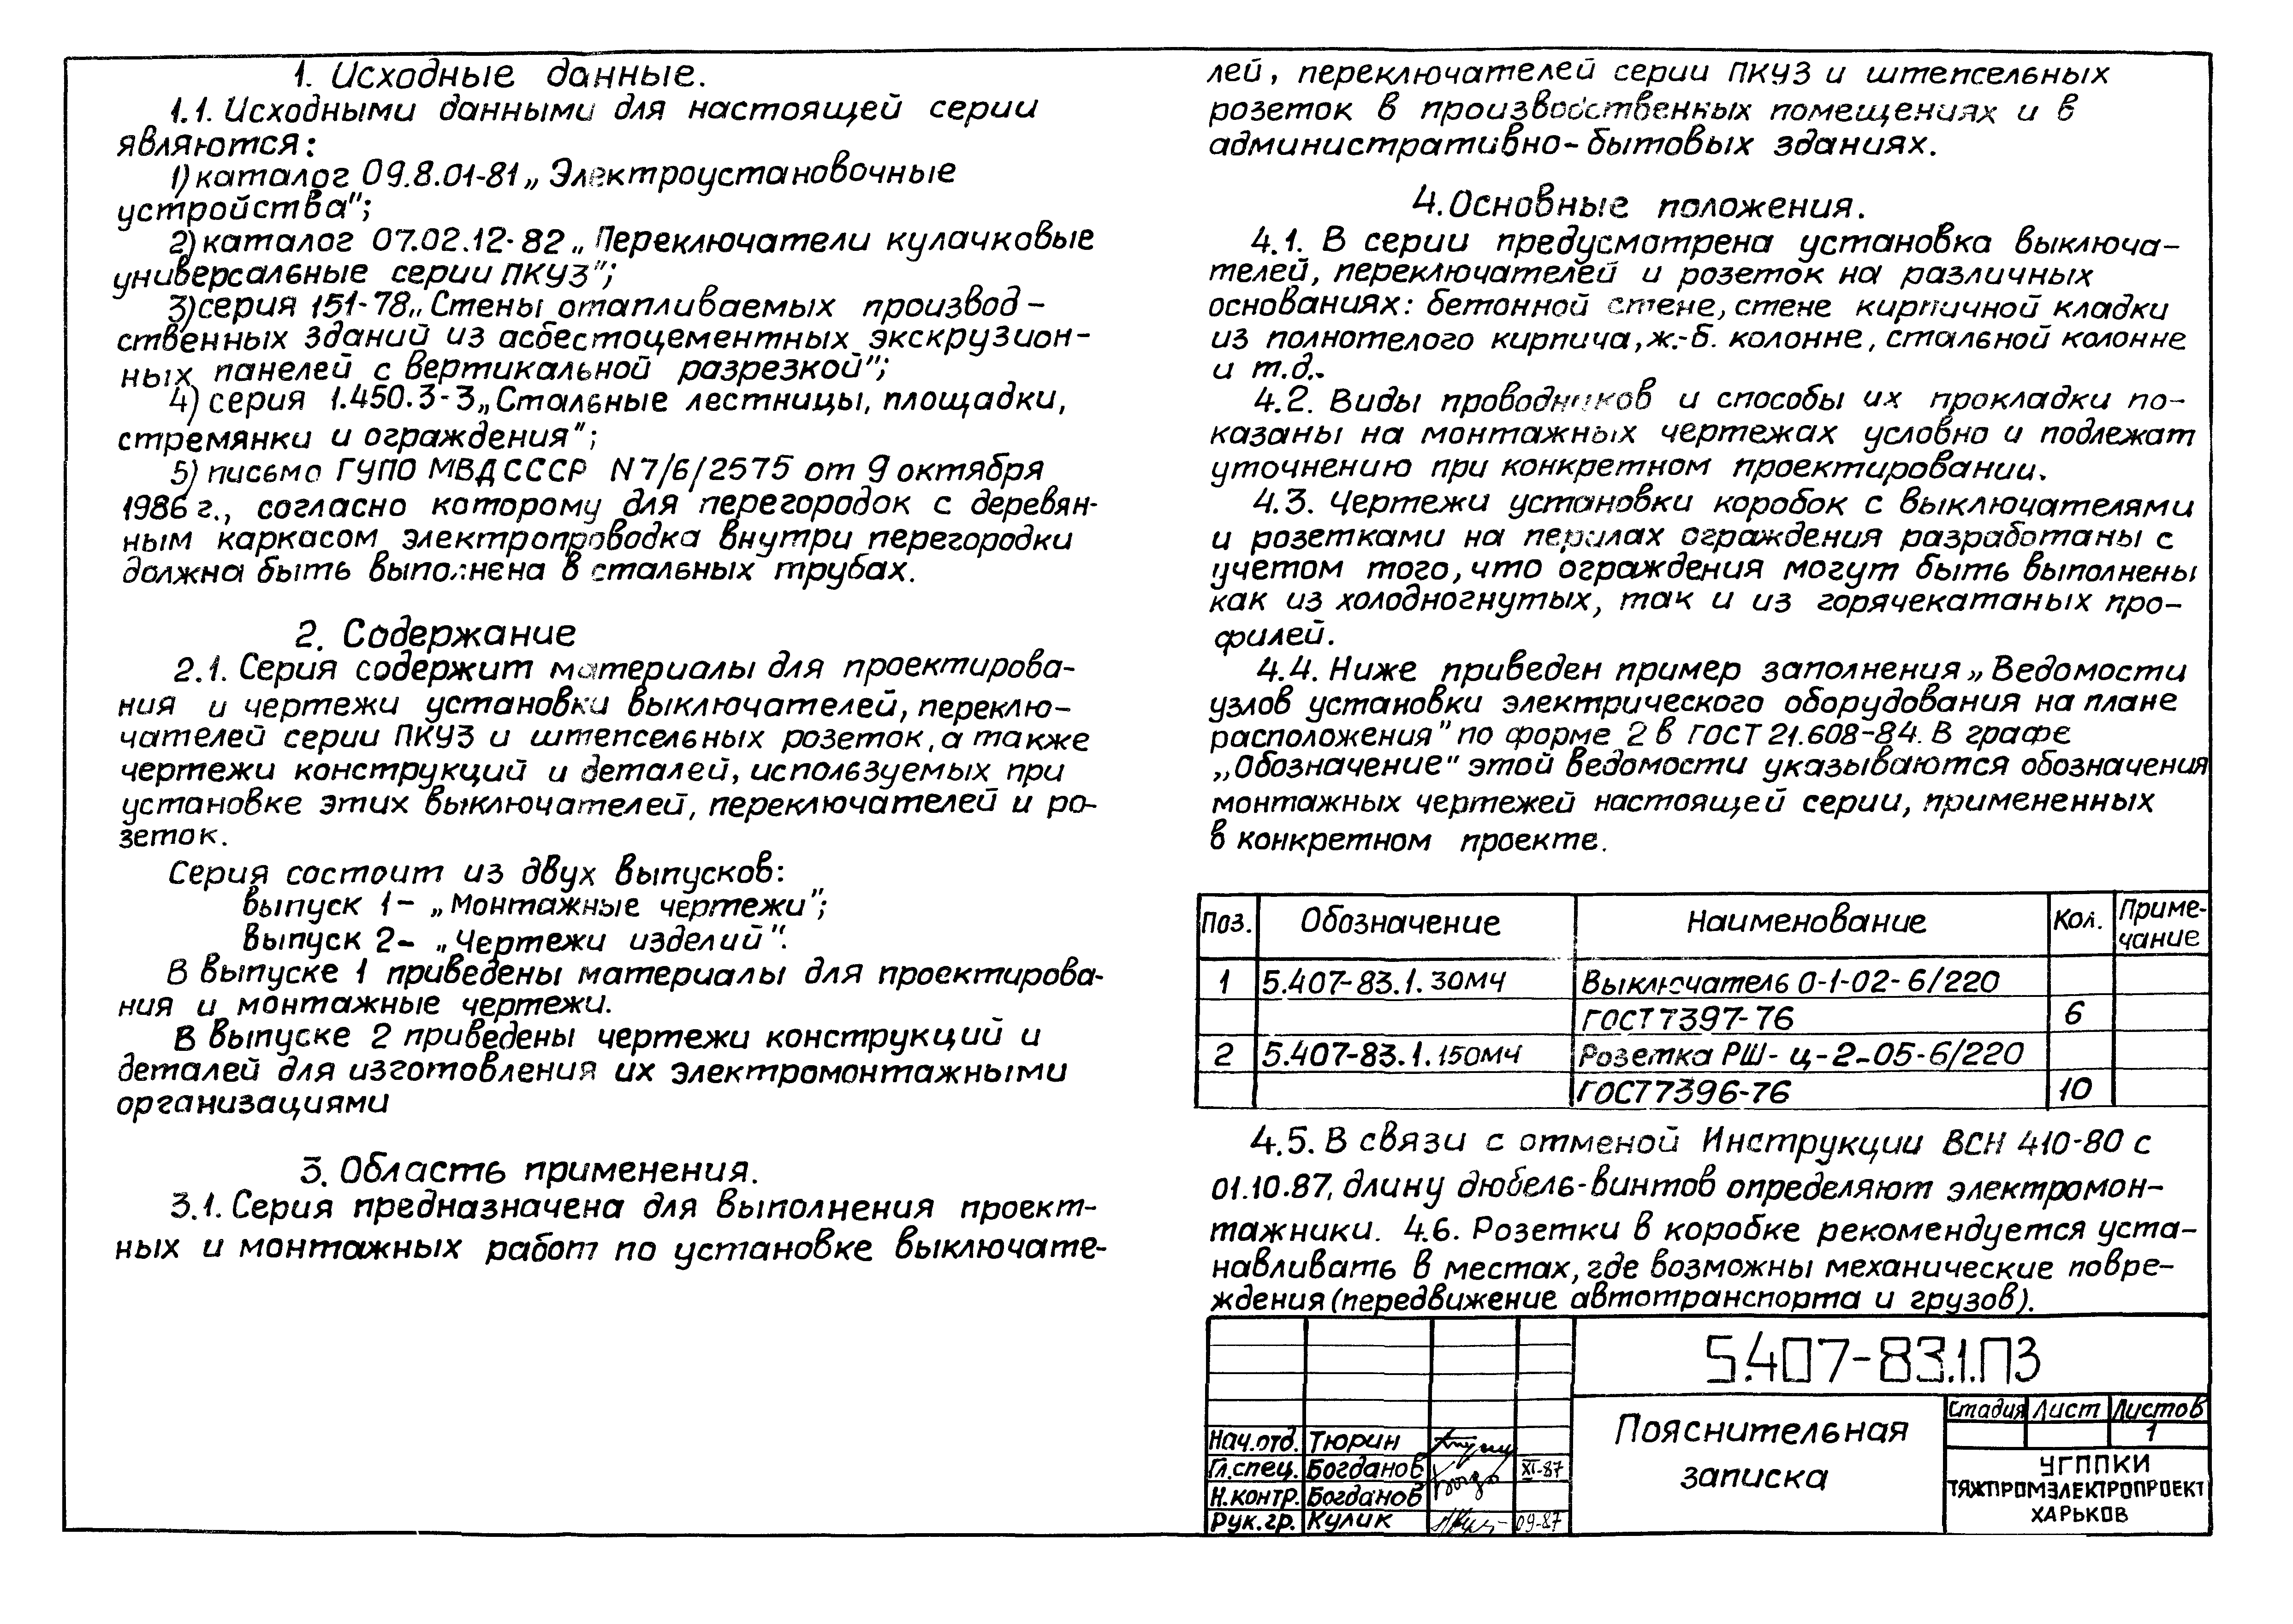 1. Исходные данные.
1.1. Исходными данными для настоящей серии
являются:
1) каталог 09.8.01-81 „Электроустановочные
устройства";
2) каталог 07.02.12-82 „Переключатели кулачковые
универсальные серии ПКУ3";
3) серия 151-78 „Стены отапливаемых производ-
ственных зданий из асбестоцементных экскрузион-
ных панелей с вертикальной разрезкой";
4) серия 1.450.3-3 „Стальные лестницы, площадки,
стремянки и ограждения";
5) письмо ГУПО МВД СССР N7/6/2575 от 9 октября
1986 г., согласно которому для перегородок с деревян-
ным каркасом электропроводка внутри перегородки
должна быть выполнена в стальных трубах.
2. Содержание
2.1. Серия содержит материалы для проектирова-
ния и чертежи установки выключателей, переклю-
чателей серии ПКУ3 и штепсельных розеток, а также
чертежи конструкций и деталей, используемых при
установке этих выключателей, переключателей и ро-
зеток.
Серия состоит из двух выпусков:
выпуск 1- „Монтажные чертежи";
выпуск 2- „Чертежи изделий".
В выпуске 1 приведены материалы для проектирова-
ния и монтажные чертежи.
В выпуске 2 приведены чертежи конструкций и
деталей для изготовления их электромонтажными
организациями
3. Область применения.
3.1. Серия предназначена для выполнения проект-
ных и монтажных работ по установке выключате-
лей, переключателей серии ПКУ3 и штепсельных
розеток в производственных помещениях и в
административно-бытовых зданиях.
4. Основные положения.
4.1. В серии предусмотрена установка выключа-
телей, переключателей и розеток на различных
основаниях: бетонной стене, стене кирпичной кладки
из полнотелого кирпича, ж.-б. колонне, стальной колонне
и т.д.
4.2. Виды проводников и способы их прокладки по-
казаны на монтажных чертежах условно и подлежат
уточнению при конкретном проектировании.
4.3. Чертежи установки коробок с выключателями
и розетками на перилах ограждения разработаны с
учетом того, что ограждения могут быть выполнены
как из холодногнутых, так и из горячекатаных про-
филей.
4.4. Ниже приведен пример заполнения „Ведомости
узлов установки электрического оборудования на плане
расположения" по форме 2 в ГОСТ 21.608-84. В графе
„Обозначение" этой ведомости указываются обозначения
монтажных чертежей настоящей серии, примененных
в конкретном проекте.
Поз. Обозначение Наименование Кол. Приме-
чание
1 5.407-83.1.30МЧ Выключатель 0-1-02-6/220
ГОСТ 7397-76 6
2 5.407-83.1.150МЧ Розетка РШ-ц-2-05-6/220
ГОСТ 7396-76 10
4.5. В связи с отменой Инструкции ВСН 410-80 с
01.10.87, длину дюбель-винтов определяют электромон-
тажники. 4.6. Розетки в коробке рекомендуется уста-
навливать в местах, где возможны механические повре-
ждения (передвижение автотранспорта и грузов).
5.407-83.1.ПЗ
Пояснительная
записка
Стадия Лист Листов
1
УГППКИ
ТЯЖПРОМЭЛЕКТРОПРОЕКТ
ХАРЬКОВ
Нач.отд. Тюрин
Гл.спец. Богданов XI-87
Н.контр. Богданов
Рук.гр. Кулик 09-87